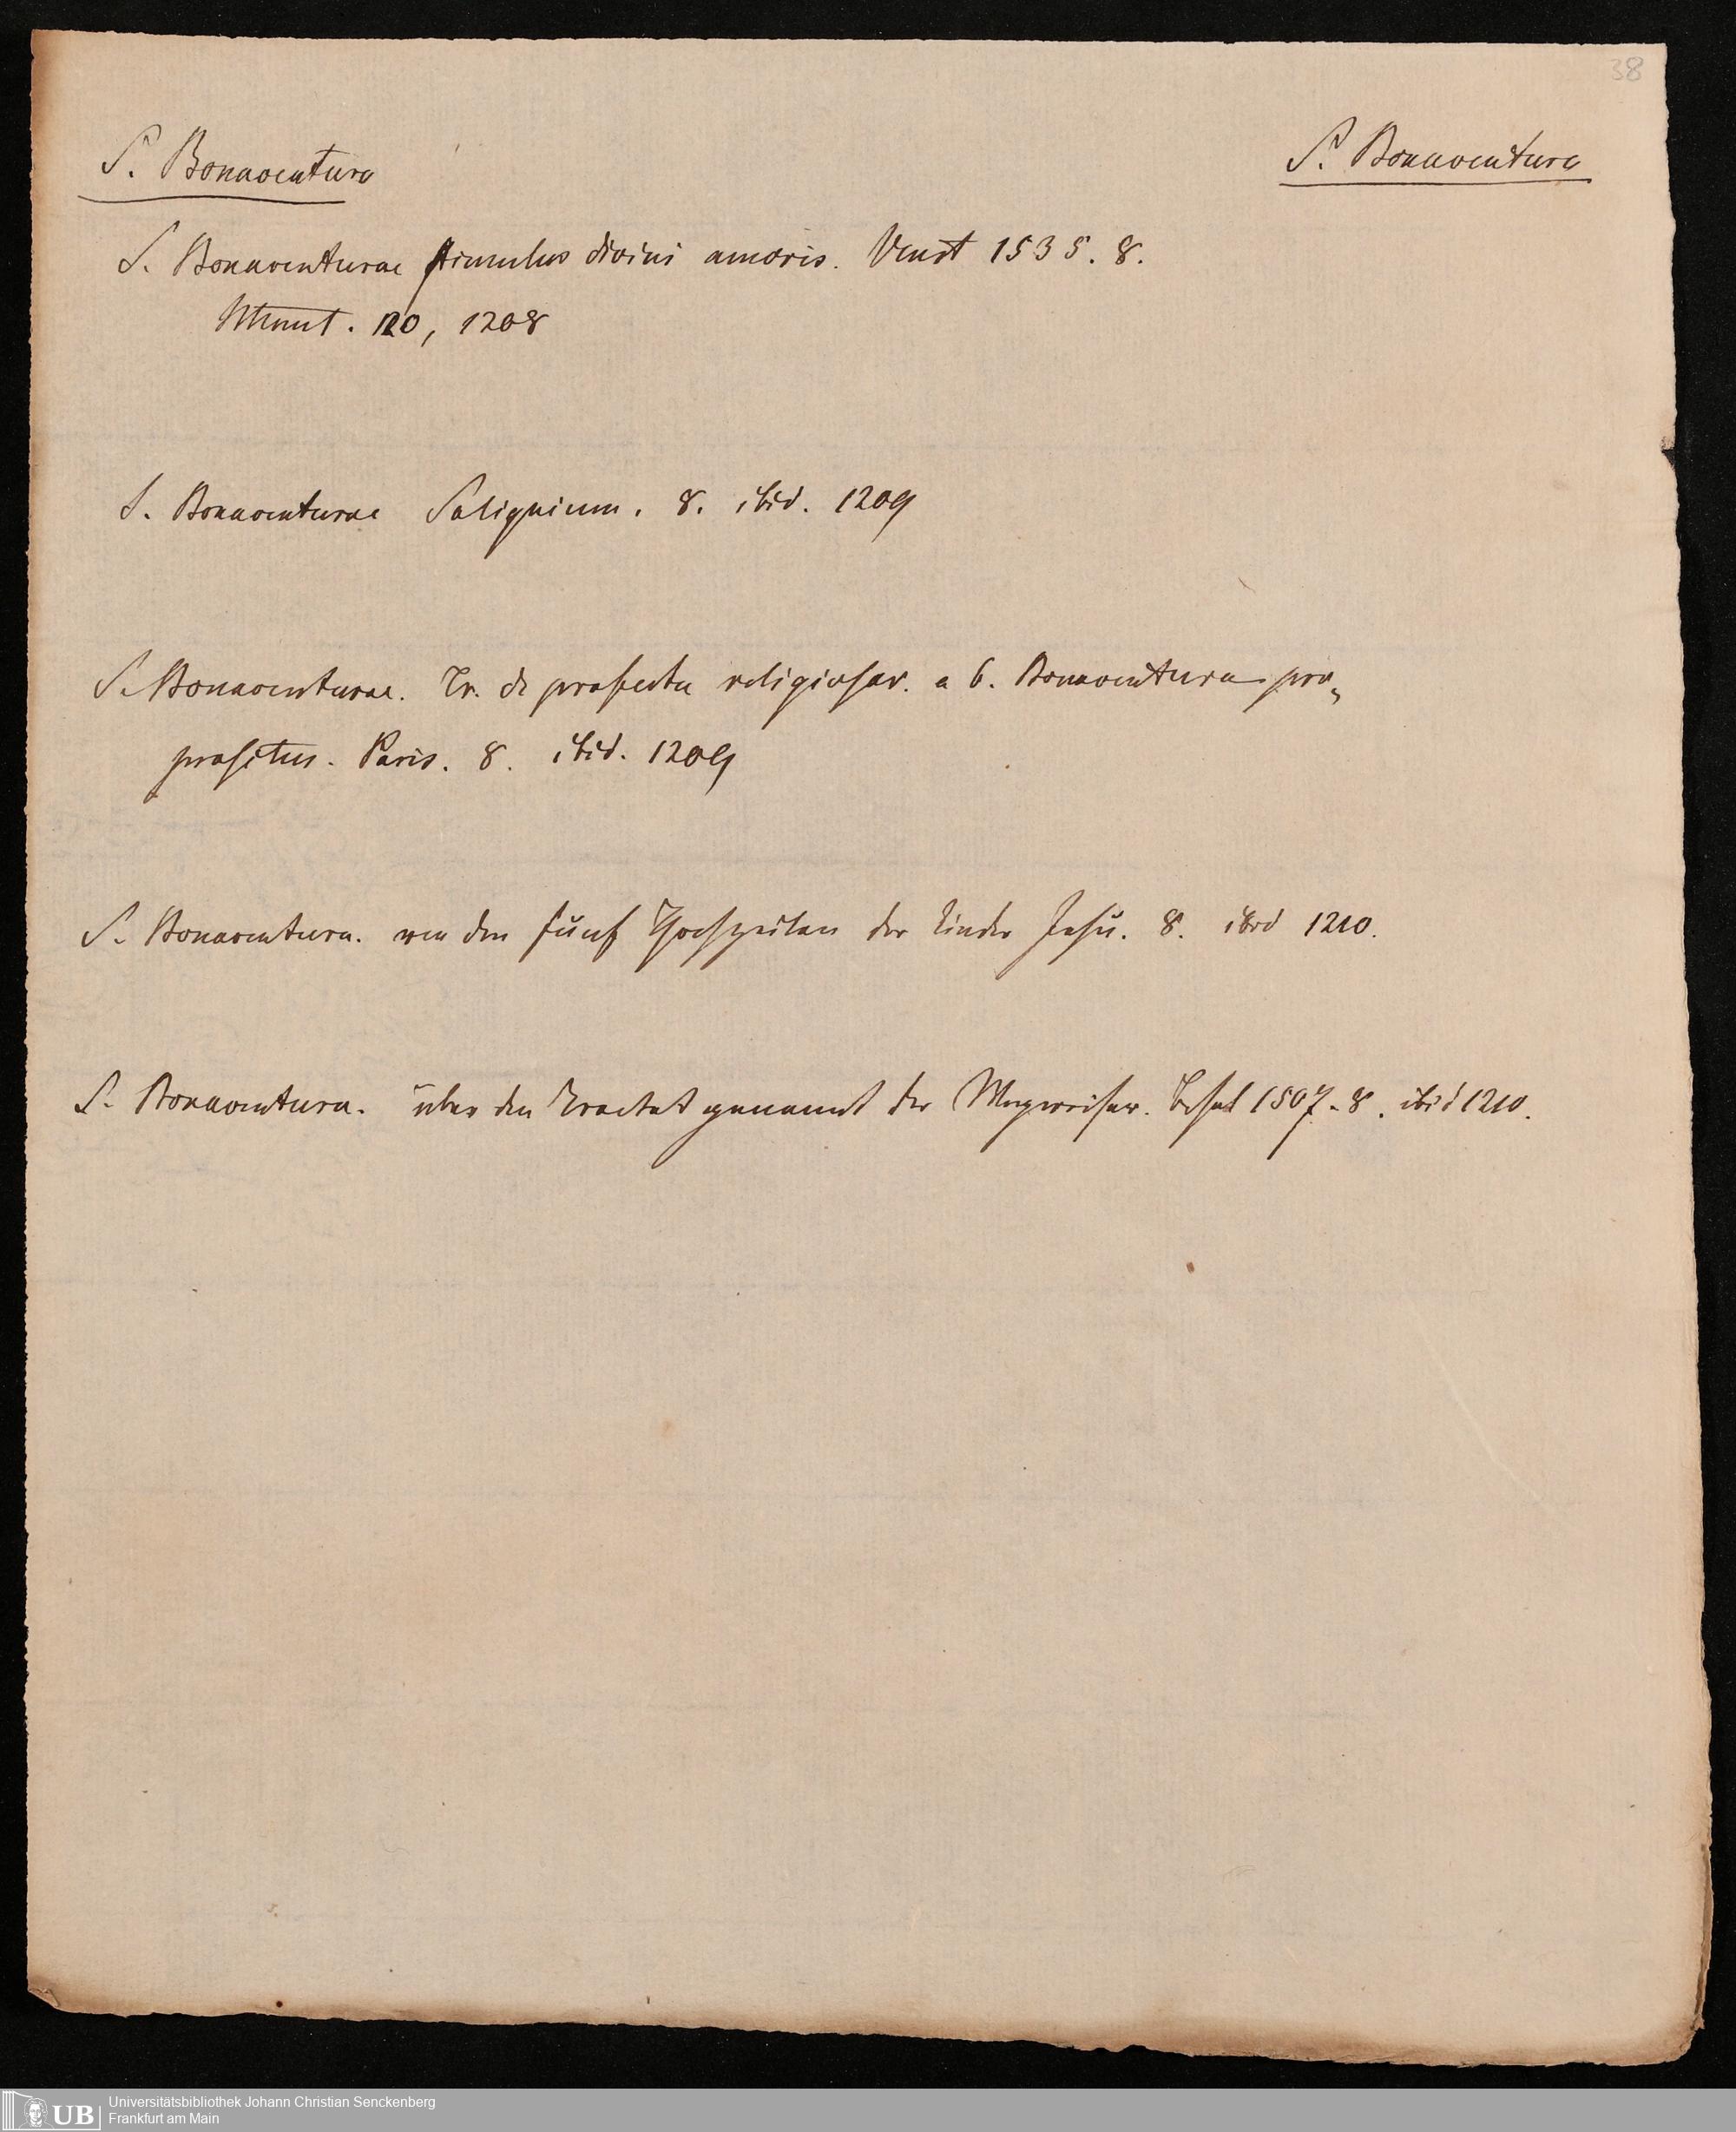 38
S. Bonaventura
S. Bonaventura
S. Bonaventurae stimulus divini amoris. Venet 1535. 8.
120, 1208
S. Bonaventurae Soliquium. 8. ibid. 1209
S. Bonaventurae. Tr. de profectu religiosor. a b. Bonaventura pro-
positus. Paris. 8. ibid. 1209
S. Bonaventura. von den fünf Hochzeiten der Kinder Jesu. 8. ibid 1210.
S. Bonaventura. über den Tractat genannt der Wegweiser. Basel 1507. 8. ibid 1210.
UB
Universitätsbibliothek Johann Christian Senckenberg
Frankfurt am Main